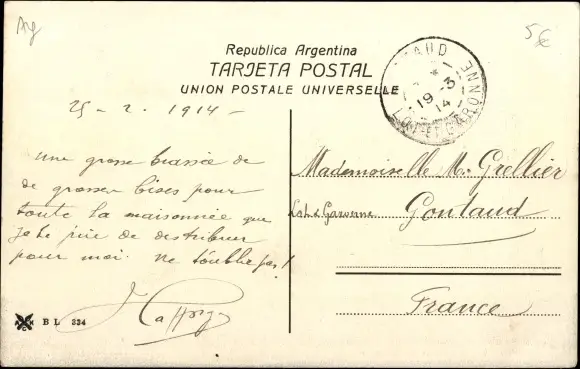 Arg
5€
Republica Argentina
TARJETA POSTAL
UNION POSTALE UNIVERSELLE
GONTAUD
19-3
14
LOT-ET-GARONNE
25-2-1914-
une grosse brassée de
de grosses bises pour
toute la maisonnée que
je te prie de distribuer
pour moi. Ne t'oublie pas!
Mademoiselle M. Grellier
Lot & Garonne Gontaud
France
B L 334